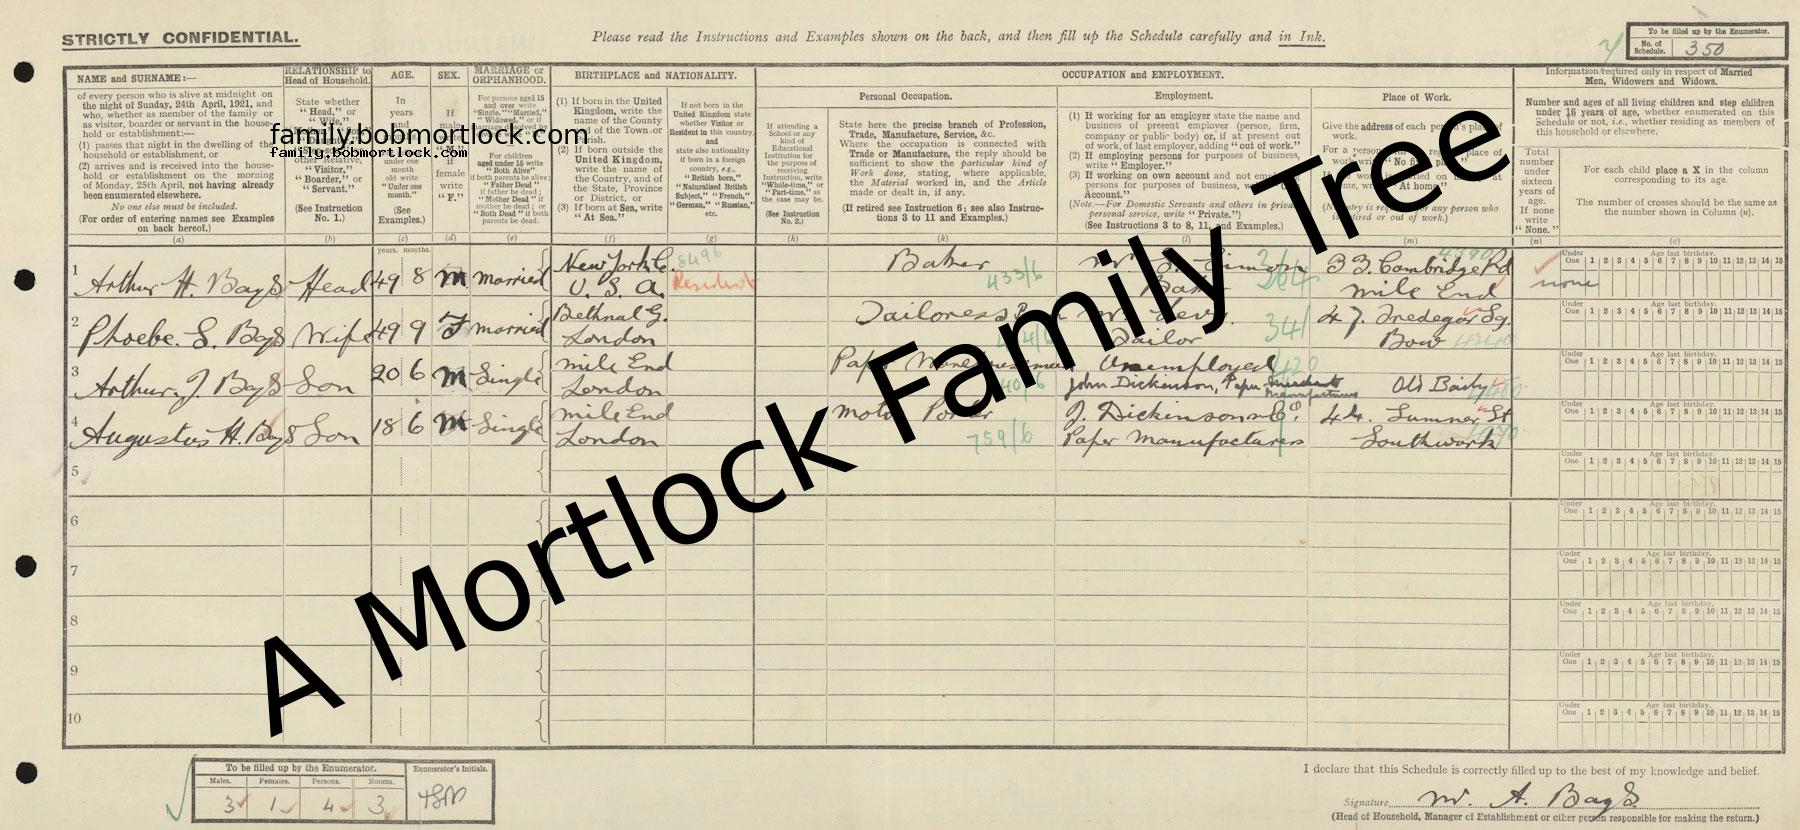 STRICTLY CONFIDENTIAL.
Please read the Instructions and Examples shown on the back, and then fill up the Schedule carefully and in Ink.
To be filled up by the Enumerator.
No. of Schedule. 350
NAME and SURNAME:—
of every person who is alive at midnight on
the night of Sunday, 24th April, 1921, and
who, whether as member of the family or
as visitor, boarder or servant in the house-
hold or establishment:—
(1) passes that night in the dwelling of the
household or establishment, or
(2) arrives and is received into the house-
hold or establishment on the morning
of Monday, 25th April, not having already
been enumerated elsewhere.
No one else must be included.
(For order of entering names see Examples
on back hereof.)
(a)
RELATIONSHIP to
Head of Household.
State whether
"Head," or
"Wife,"
other Relative,
"Visitor,"
"Boarder," or
"Servant."
(See Instruction
No. 1.)
(b)
AGE.
In
years
and
month
old write
"Under one
month."
(See
Examples.)
(c)
years. months.
SEX.
If
male
"M."
female
write
"F."
(d)
MARRIAGE or
ORPHANHOOD.
For persons aged 15
and over write
"Single," "Married,"
"Widowed," or
For children
aged under 15 write
"Both Alive"
if both parents be alive;
"Father Dead"
if father be dead;
"Mother Dead" if
mother be dead; or
"Both Dead" if both
parents be dead.
(e)
BIRTHPLACE and NATIONALITY.
(1) If born in the United
Kingdom, write the
name of the County
and of the Town or
Parish.
(2) If born outside the
United Kingdom,
write the name of
the Country, and of
the State, Province
or District, or
(3) If born at Sea, write
"At Sea."
(f)
If not born in the
United Kingdom state
whether Visitor or
Resident in this country,
and
state also nationality
if born in a foreign
country, e.g.,
"British born,"
"Naturalised British
Subject," "French,"
"German," "Russian,"
etc.
(g)
OCCUPATION and EMPLOYMENT.
If attending a
School or any
kind of
Educational
Institution for
the purpose of
receiving
Instruction, write
"Whole-time," or
"Part-time," as
the case may be.
(See Instruction
No. 2.)
(h)
Personal Occupation.
State here the precise branch of Profession,
Trade, Manufacture, Service, &c.
Where the occupation is connected with
Trade or Manufacture, the reply should be
sufficient to show the particular kind of
Work done, stating, where applicable,
the Material worked in, and the Article
made or dealt in, if any.
(If retired see Instruction 6; see also Instruc-
tions 3 to 11 and Examples.)
(k)
Employment.
(1) If working for an employer state the name and
business of present employer (person, firm,
company or public body) or, if at present out
of work, of last employer, adding "out of work."
(2) If employing persons for purposes of business,
write "Employer."
(3) If working on own account and not employing
persons for purposes of business, write "Own
Account."
(Note.—For Domestic Servants and others in private
personal service, write "Private.")
(See Instructions 3 to 8, 11, and Examples.)
(l)
Place of Work.
Give the address of each person's place of
work.
(m)
Information required only in respect of Married
Men, Widowers and Widows.
Number and ages of all living children and step children
under 16 years of age, whether enumerated on this
Schedule or not, i.e., whether residing as members of
this household or elsewhere.
Total
number
under
sixteen
years of
age.
If none
write
"None."
(n)
For each child place a X in the column
corresponding to its age.
The number of crosses should be the same as
the number shown in Column (n).
(o)
family.bobmortlock.com
family.bobmortlock.com
A Mortlock Family Tree
1 Arthur H. Bays Head 49 8 M Married New York C. U. S. A. 8496 Resident Baker 433/6 Baker 33. Cambridge Rd Mile End none
2 Phoebe. S. Bays Wife 49 9 F Married Bethnal G. London Tailoress Tailor 34/ 47. Tredegar Sq. Bow
3 Arthur. J. Bays Son 20 6 M Single Mile End London Unemployed John Dickenson, Paper Manufacturers Old Baily
4 Augustus H. Bays Son 18 6 M Single Mile End London Motor Porter 759/6 J. Dickinson & Co. Paper Manufacturers 44. Sumner St Southwark
5
6
7
8
9
10
Under One Age last birthday. 1 2 3 4 5 6 7 8 9 10 11 12 13 14 15
To be filled up by the Enumerator.
Males. Females. Persons. Rooms.
3 1 4 3
Enumerator's Initials.
I declare that this Schedule is correctly filled up to the best of my knowledge and belief.
Signature Mr. A. Bays
(Head of Household, Manager of Establishment or other person responsible for making the return.)